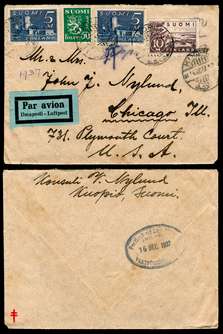 SUOMI SUOMI SUOMI SUOMI
5 50 5 10
Mr. & Mrs.
1937
John J. Nylund,
Chicago Ill.
Par avion
Lentoposti - Luftpost
731. Plymouth Court.
U. S. A.
Konsuli V. Nylund
Kuopio, Suomi.
16 DEC. 1937